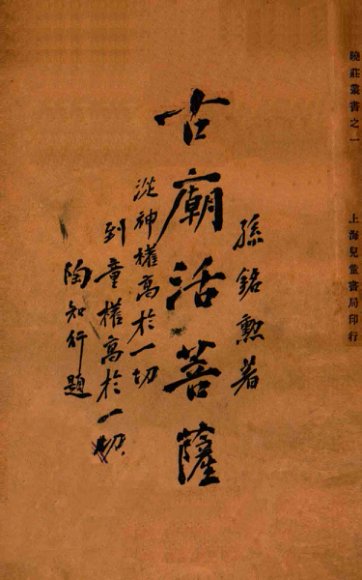 曉莊叢書之一
上海兒童書局印行
孫銘勲著
古廟活菩薩
從神權高於一切
到童權高於一切
陶知行題